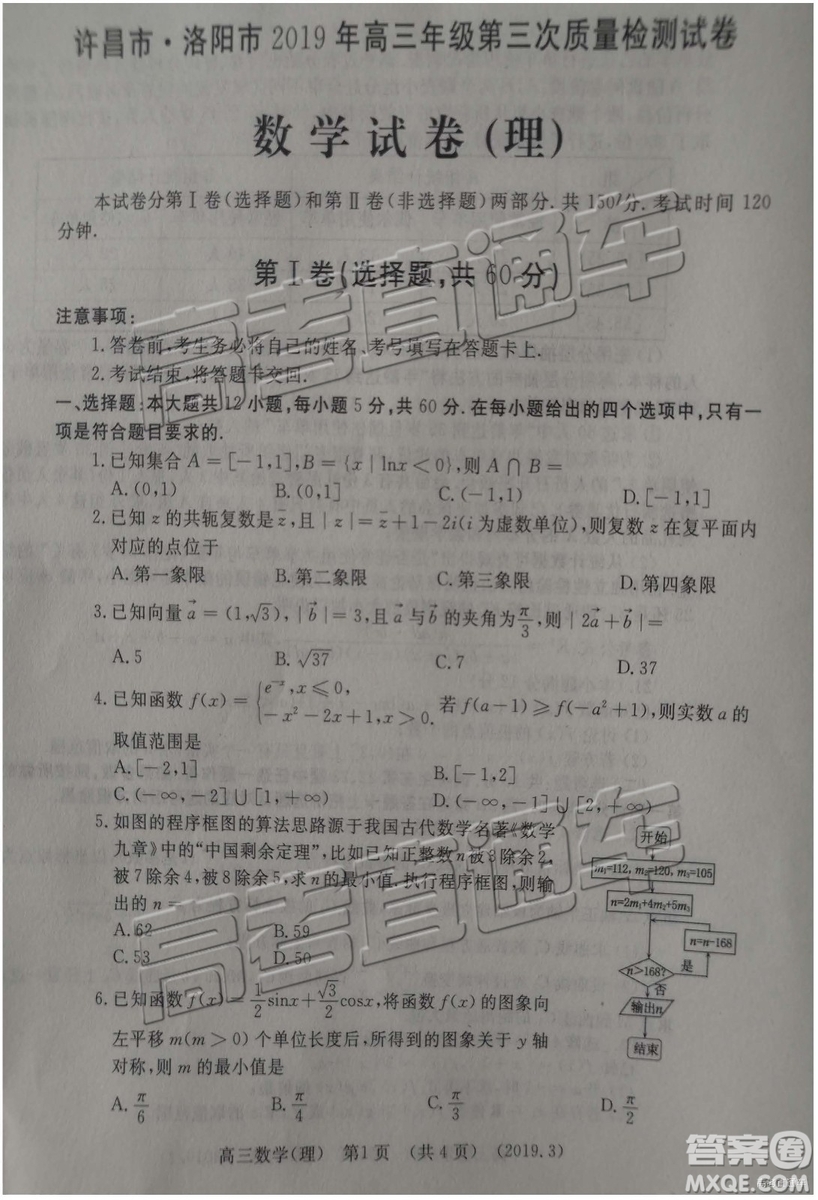 许昌市·洛阳市 2019 年高三年级第三次质量检测试卷
数学试卷(理)
本试卷分第Ⅰ卷(选择题)和第Ⅱ卷(非选择题)两部分.共 150 分.考试时间 120
分钟.
第Ⅰ卷(选择题,共 60 分)
注意事项:
1.答卷前,考生务必将自己的姓名、考号填写在答题卡上.
2.考试结束,将答题卡交回.
一、选择题:本大题共 12 小题,每小题 5 分,共 60 分.在每小题给出的四个选项中,只有一
项是符合题目要求的.
1.已知集合 A=[-1,1],B={x|lnx<0},则 A∩B=
A.(0,1) B.(0,1] C.(-1,1) D.[-1,1]
2.已知 z 的共轭复数是 z̄,且|z|=z̄+1-2i(i 为虚数单位),则复数 z 在复平面内
对应的点位于
A.第一象限 B.第二象限 C.第三象限 D.第四象限
3.已知向量 a⃗=(1,√3),|b⃗|=3,且 a⃗ 与 b⃗ 的夹角为 π/3,则|2a⃗+b⃗|=
A.5 B.√37 C.7 D.37
4.已知函数 f(x)={e^{-x},x≤0, -x²-2x+1,x>0. 若 f(a-1)≥f(-a²+1),则实数 a 的
取值范围是
A.[-2,1] B.[-1,2]
C.(-∞,-2]∪[1,+∞) D.(-∞,-1]∪[2,+∞)
5.如图的程序框图的算法思路源于我国古代数学名著《数学
九章》中的“中国剩余定理”,比如已知正整数 n 被 3 除余 2,
被 7 除余 4,被 8 除余 5,求 n 的最小值.执行程序框图,则输
出的 n=
A.62 B.59
C.53 D.50
开始
m₁=112, m₂=120, m₃=105
n=2m₁+4m₂+5m₃
n=n-168
n>168? 是
否
输出n
结束
6.已知函数 f(x)=1/2 sinx+√3/2 cosx,将函数 f(x)的图象向
左平移 m(m>0)个单位长度后,所得到的图象关于 y 轴
对称,则 m 的最小值是
A.π/6 B.π/4 C.π/3 D.π/2
高三数学(理) 第1页 (共4页) (2019.3)
高考直通车
高考直通车
答案圈
MXQE.COM